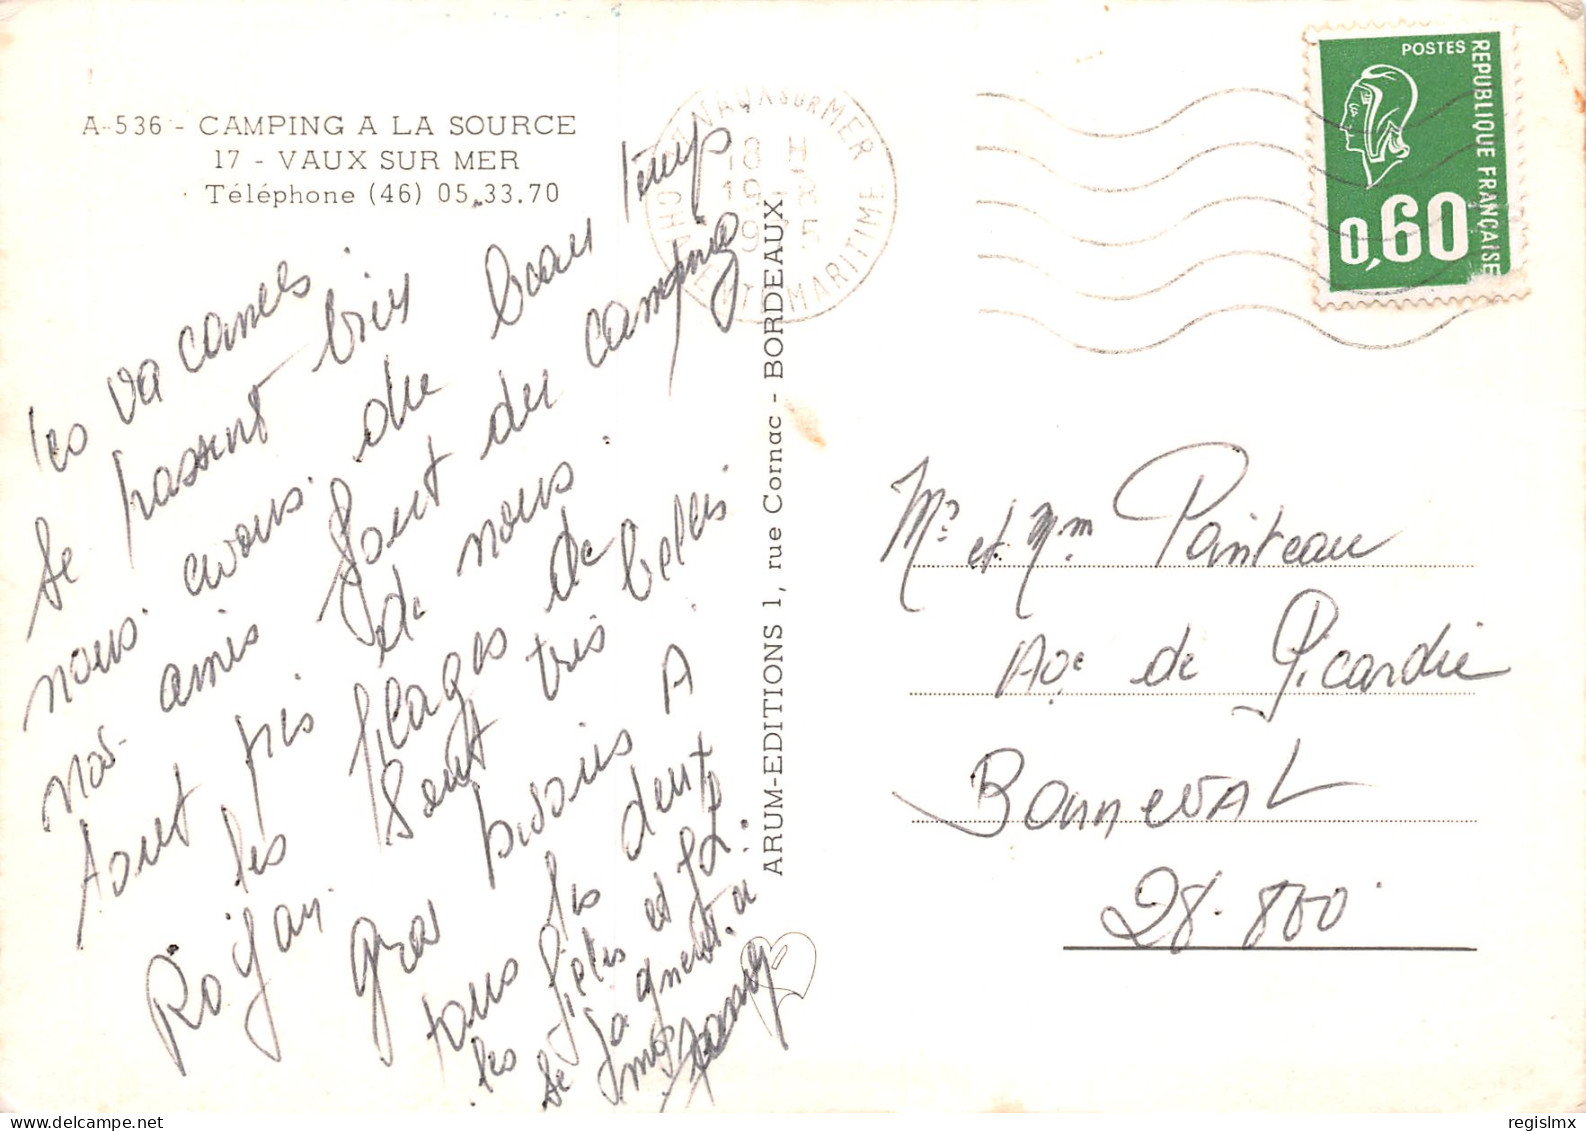 A-536 - CAMPING A LA SOURCE
17 - VAUX SUR MER
Téléphone (46) 05.33.70
VAUX SUR MER
18 H
19 - 8
1975
CHARENTE MARITIME
POSTES
REPUBLIQUE FRANÇAISE
0,60
les vacances
se passent bien beau temps
nous avons du
nos amis font du camping
tout près de nous.
les plages de
Royan. sont très belles
gros baisers A
tous les deux
les
se
ARUM-EDITIONS 1, rue Cornac - BORDEAUX
Mr et Mm Pointeau
Ave de Picardie
BonnevAL
28.800
delcampe.net
regislmx